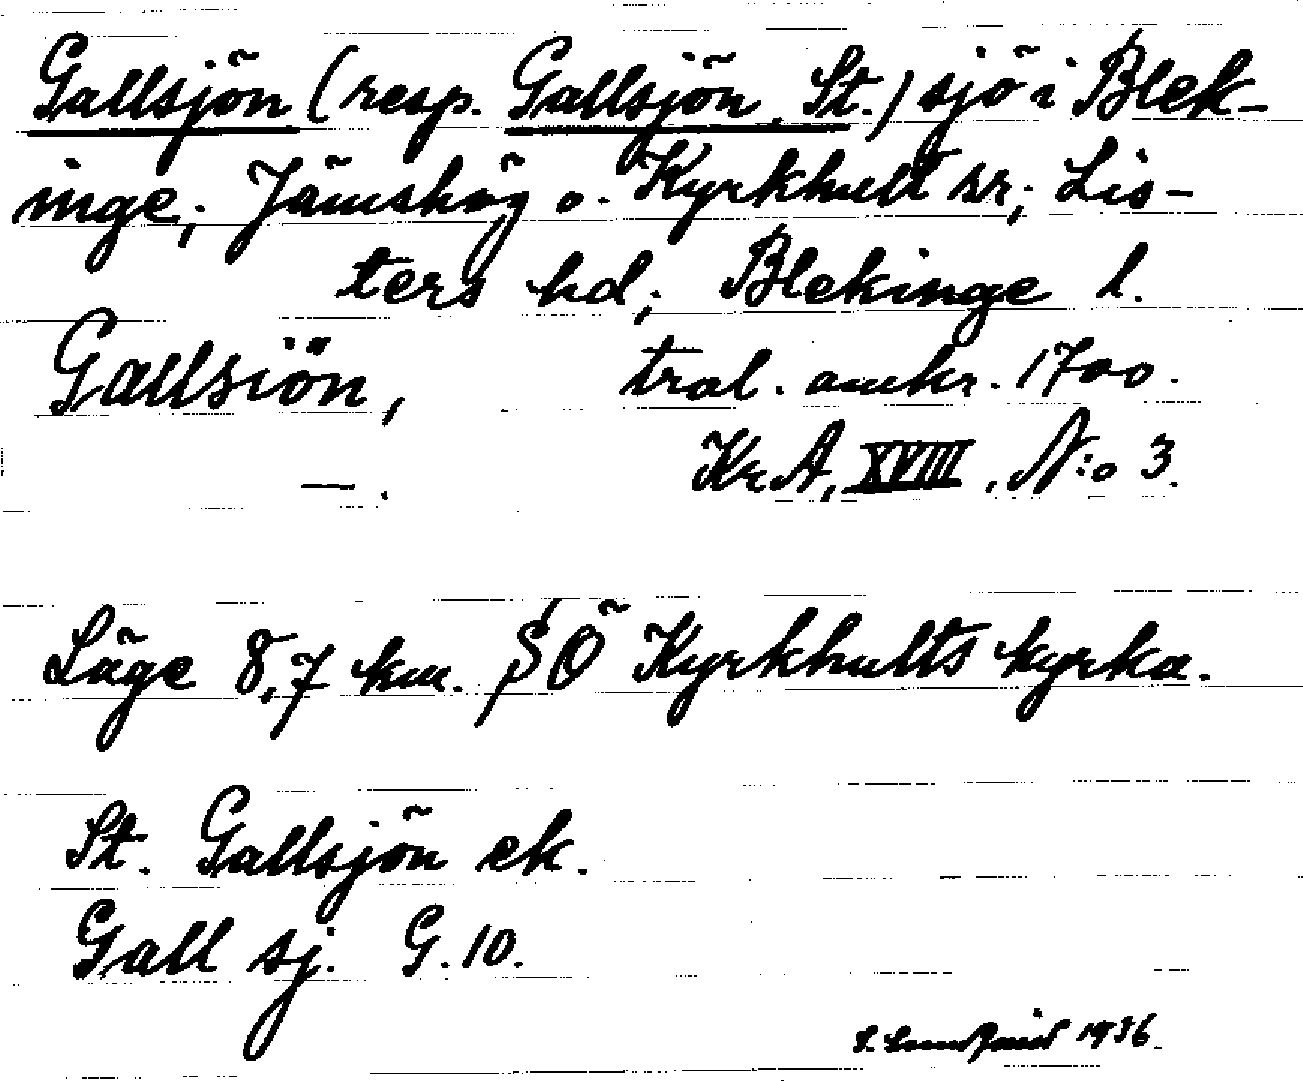 Gallsjön (resp. Gallsjön, St.) sjö i Blek-
inge; Jämshög o. Kyrkhult sr; Lis-
ters hd; Blekinge l.
Gallsiön, tral. omkr. 1700.
—. Kr.A, XVIII, N:o 3.
Läge 8,7 km. SÖ Kyrkhults kyrka.
St. Gallsjön ek.
Gall sj. G. 10.
1936.